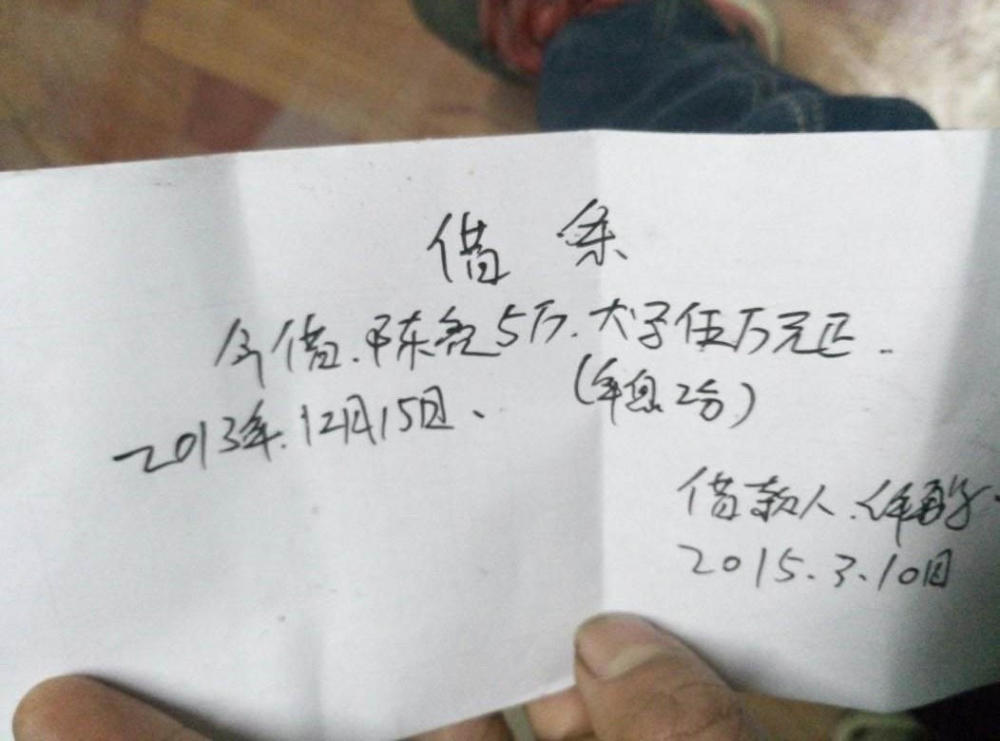 借条
今借.陈亮5万.大子伍万元正.
2013年.12月15日、(年息2分)
借款人.
2015.3.10日